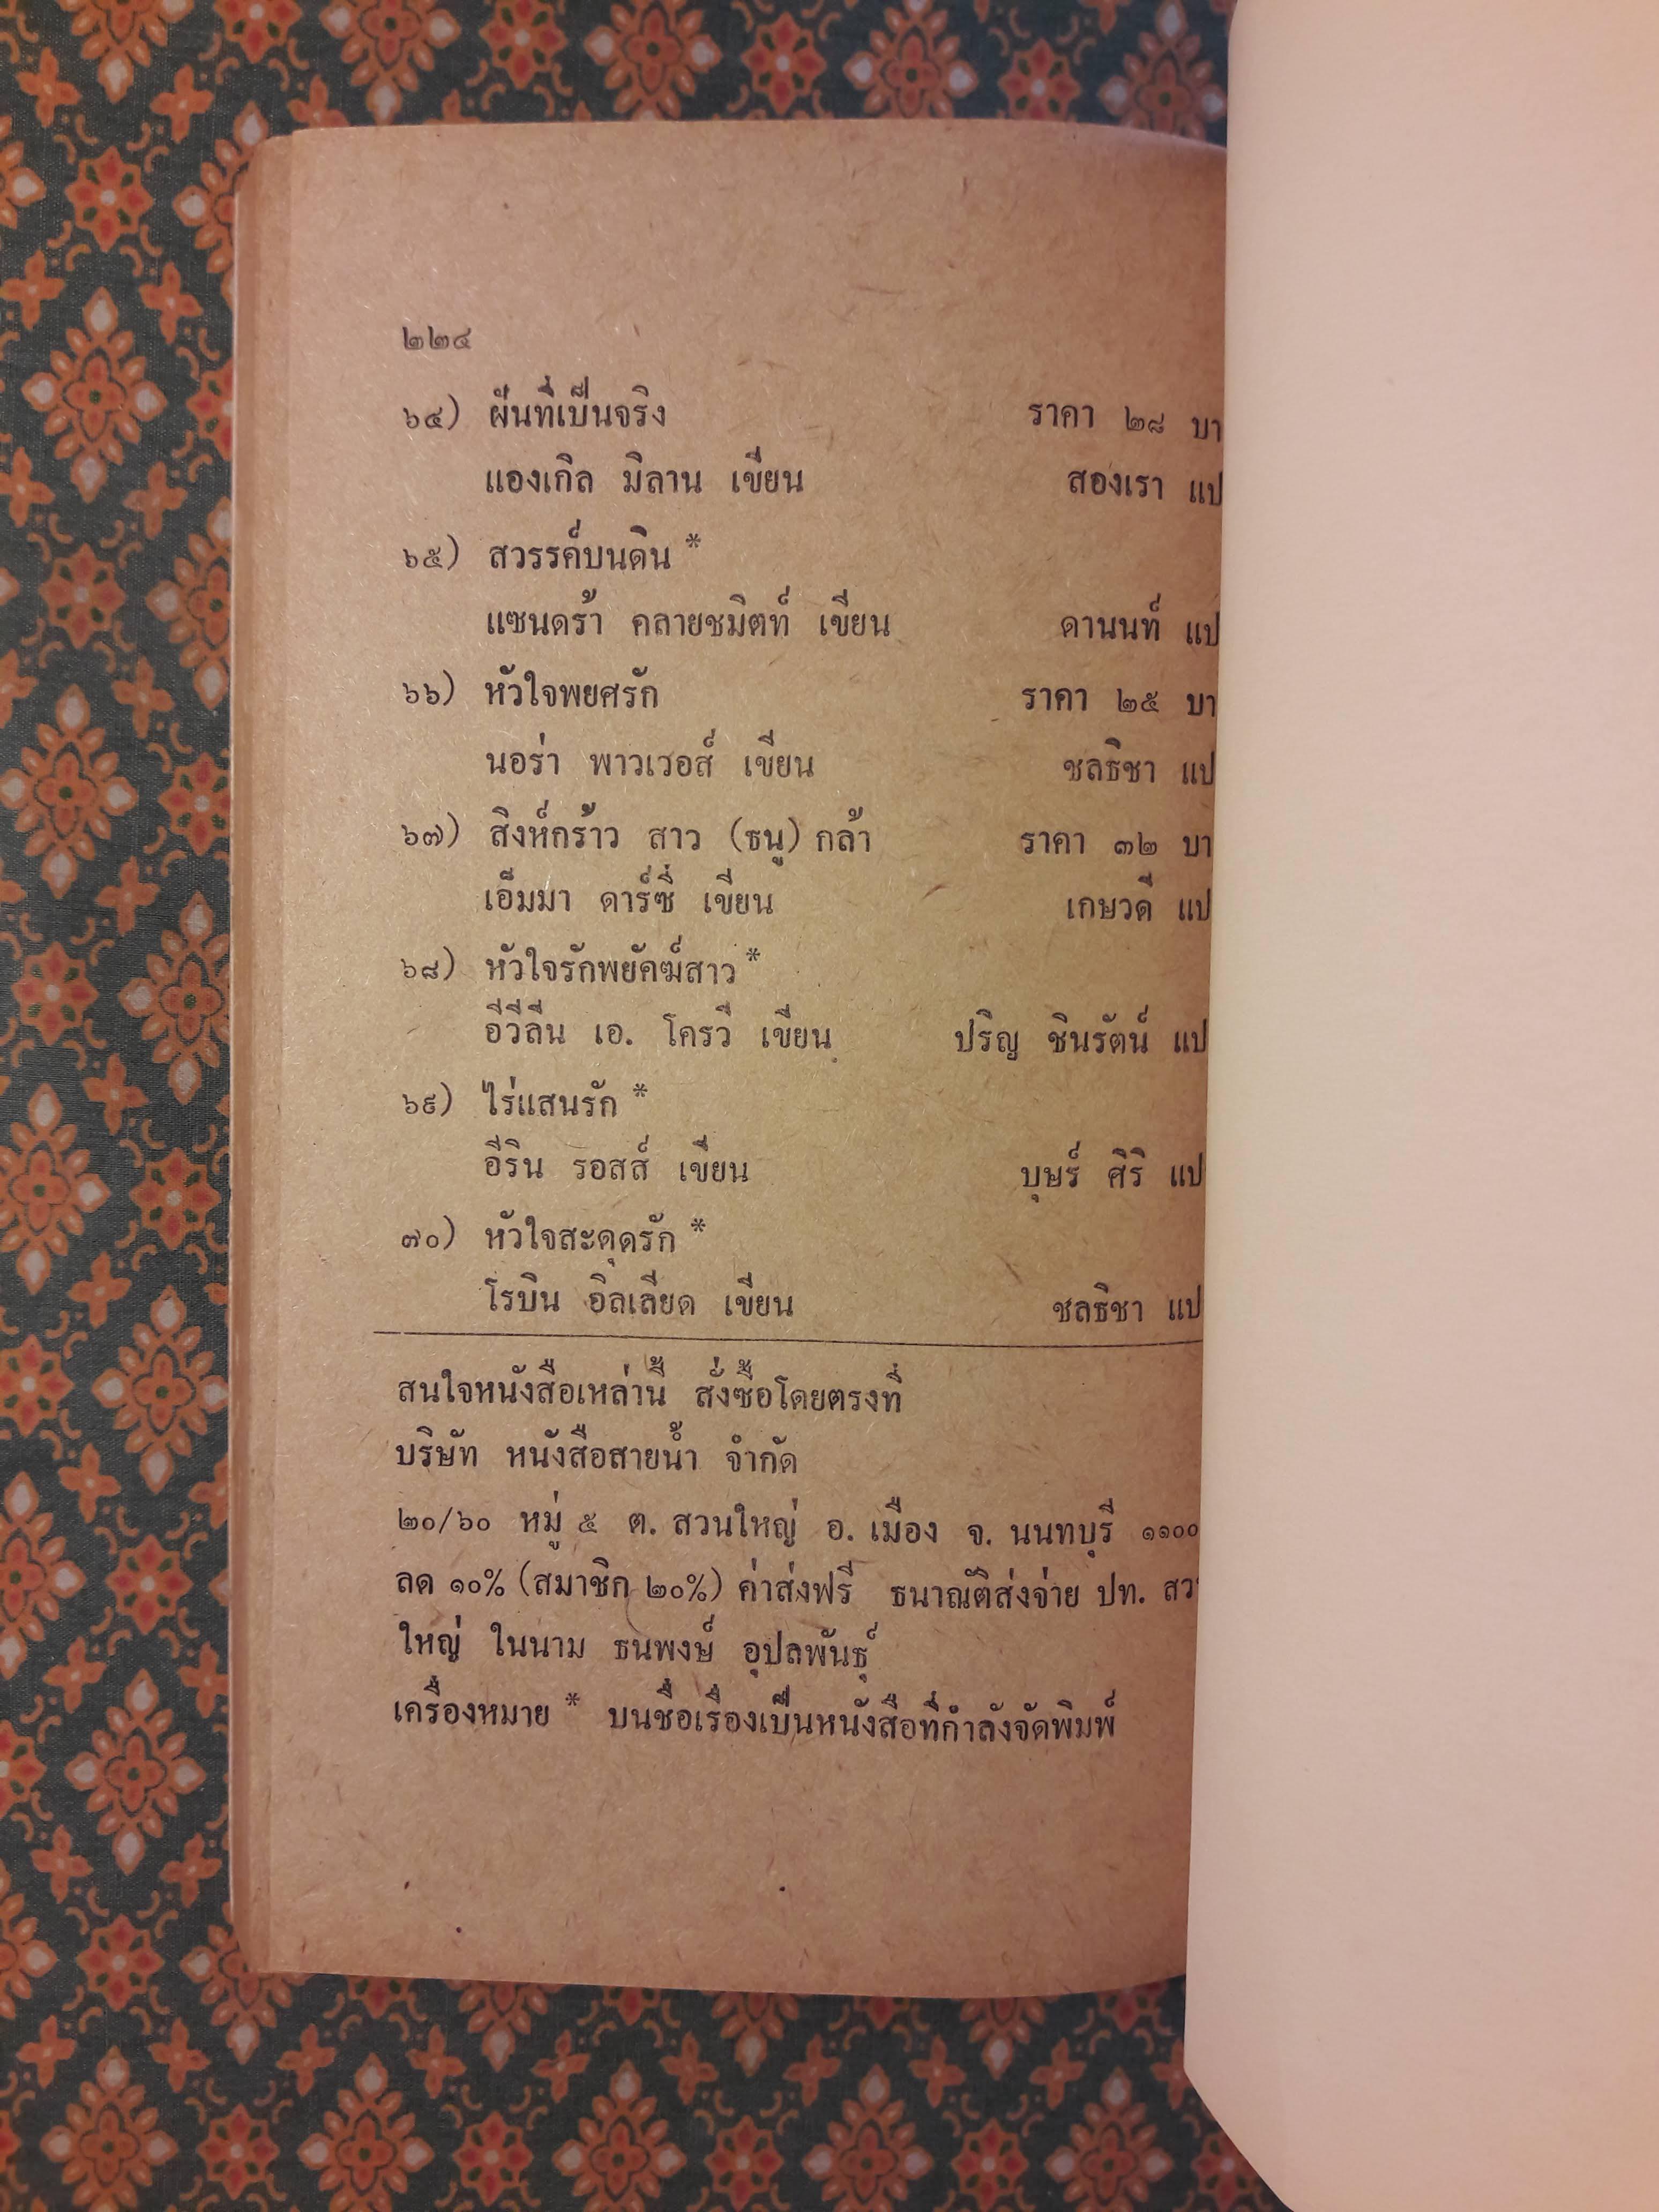 ๒๒๔
๖๔) ฝันที่เป็นจริง ราคา ๒๘ บา
แองเกิล มิลาน เขียน สองเรา แป
๖๕) สวรรค์บนดิน *
แซนดร้า คลายชมิตท์ เขียน ดานนท์ แป
๖๖) หัวใจพยศรัก ราคา ๒๕ บา
นอร่า พาวเวอส์ เขียน ชลธิชา แป
๖๗) สิงห์กร้าว สาว (ธนู) กล้า ราคา ๓๒ บา
เอ็มมา ดาร์ซี่ เขียน เกษวดี แป
๖๘) หัวใจรักพยัคฆ์สาว *
อีวีลีน เอ. โครวี เขียน ปริญ ชินรัตน์ แป
๖๙) ไร่แสนรัก *
อีริน รอสส์ เขียน บุษร์ ศิริ แป
๗๐) หัวใจสะดุดรัก *
โรบิน อิลเลียด เขียน ชลธิชา แป
สนใจหนังสือเหล่านี้ สั่งซื้อโดยตรงที่
บริษัท หนังสือสายน้ำ จำกัด
๒๐/๖๐ หมู่ ๕ ต. สวนใหญ่ อ. เมือง จ. นนทบุรี ๑๑๐๐
ลด ๑๐% (สมาชิก ๒๐%) ค่าส่งฟรี ธนาณัติส่งจ่าย ปท. สว
ใหญ่ ในนาม ธนพงษ์ อุปลพันธุ์
เครื่องหมาย * บนชื่อเรื่องเป็นหนังสือที่กำลังจัดพิมพ์